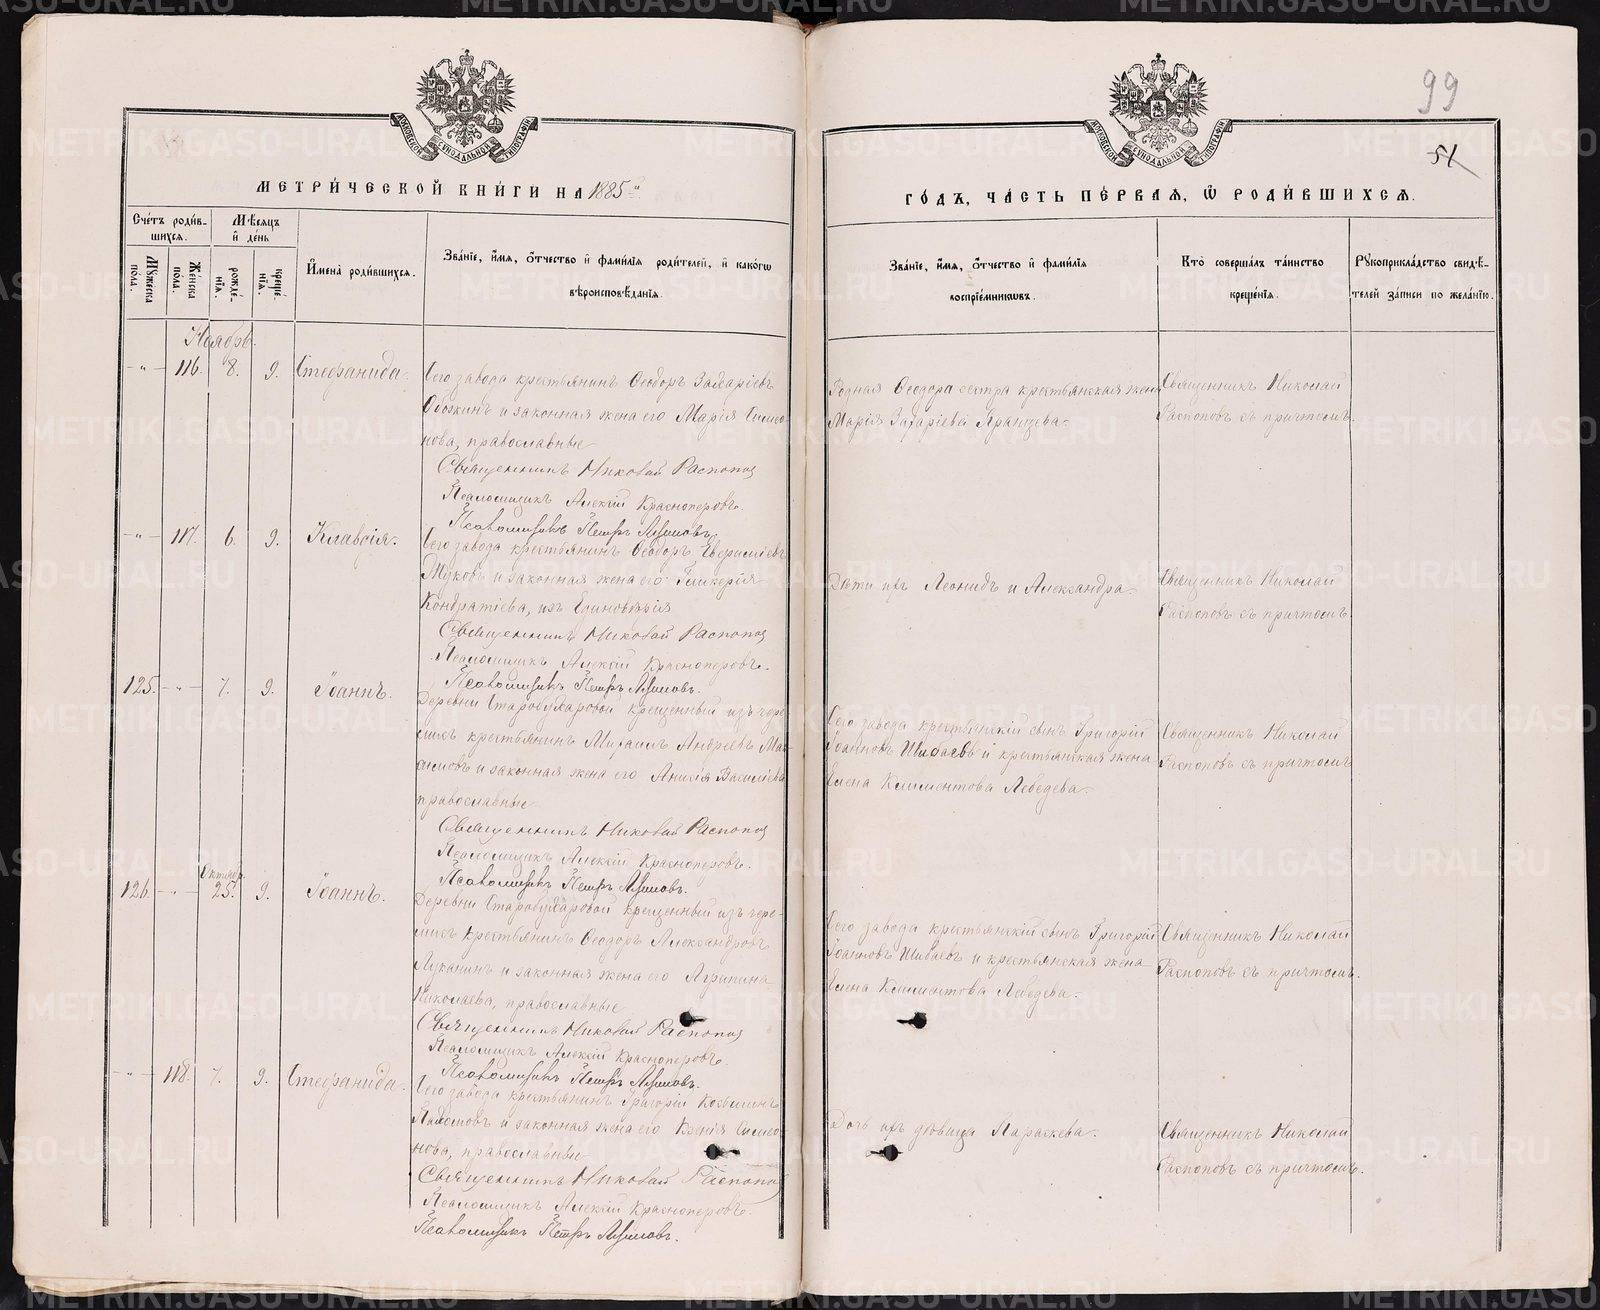 99
51
МЕТРИ́ЧЕСКОЙ КНИ́ГИ НА 1885"
ГО́ДЪ, ЧА́СТЬ ПЕ́РВАЯ, Ѡ҆ РОДИ́ВШИХСѦ.
МОСКОВСКОЙ СѴНОДАЛЬНОЙ ТИПОГРАФІИ
МОСКОВСКОЙ СѴНОДАЛЬНОЙ ТИПОГРАФІИ
Сче́тъ роди́в-
шихсѧ.
Мꙋ́жеска по́ла.
Же́нска по́ла.
Мѣ́сѧцъ и҆ де́нь
рожде́-нїѧ.
креще́-нїѧ.
И҆мена̀ роди́вшихсѧ.
Зва́нїе, и҆́мѧ, ѻ҆́тчество и҆ фами́лїѧ роди́телей, и҆ како́гѡ
вѣроисповѣ́данїѧ.
Зва́нїе, и҆́мѧ, ѻ҆́тчество и҆ фами́лїѧ
воспрїе́мникѡвъ.
Кто̀ соверша́лъ та́инство
креще́нїѧ.
Рꙋкоприкла́дство свидѣ́-
телей за́писи по жела́нїю.
Ноябрь.
-"- 116. 8. 9. Стефанида.
Сего завода крестьянинъ Ѳеодоръ Захаріевъ
Обожинъ и законная жена его Марія Симео-
нова, православные
Священникъ Николай Распопов
Псаломщикъ Алексій Красноперовъ.
Псаломщикъ Петръ
Родная Ѳеодора сестра крестьянская жена
Марія Захаріева Яранцева.
Священникъ Николай
Распоповъ съ причтомъ.
-"- 117. 6. 9. Клавдія.
Сего завода крестьянинъ Ѳеодоръ Евфиміевъ
Жуковъ и законная жена его Гликерія
Кондратіева, изъ Единовѣрія
Священникъ Николай Распопов
Псаломщикъ Алексій Красноперовъ.
Псаломщикъ Петръ
Дѣти ихъ Леонидъ и Александра.
Священникъ Николай
Распоповъ съ причтомъ.
125. -"- 7. 9. Іоаннъ.
Деревни Старобухаровой крещенный изъ чере-
мисъ крестьянинъ Михаилъ Андреевъ Мак-
симовъ и законная жена его Анисія Василіева
православные
Священникъ Николай Распопов
Псаломщикъ Алексій Красноперовъ.
Псаломщикъ Петръ
Сего завода крестьянскій сынъ Григорій
Іоанновъ Шибаевъ и крестьянская жена
Елена Климентова Лебедева.
Священникъ Николай
Распоповъ съ причтомъ
126. -"- Октябр. 25. 9. Іоаннъ.
Деревни Старобухаровой крещенный изъ чере-
мисъ крестьянинъ Ѳеодоръ Александровъ
Луканинъ и законная жена его Агрипина
Николаева, православные
Священникъ Николай Распопов
Псаломщикъ Алексій Красноперовъ.
Псаломщикъ Петръ
Сего завода крестьянскій сынъ Григорій
Іоанновъ Шибаевъ и крестьянская жена
Елена Климентова Лебедева.
Священникъ Николай
Распоповъ съ причтомъ.
-"- 118. 7. 9. Стефанида.
Сего завода крестьянинъ Григорій Козьминъ
Пахомовъ и законная жена его Ксенія Симео-
нова, православные
Священникъ Николай Распопов
Псаломщикъ Алексій Красноперовъ.
Псаломщикъ Петръ
Дочь ихъ дѣвица Параскева.
Священникъ Николай
Распоповъ съ причтомъ.
METRIKI.GASO-URAL.RU